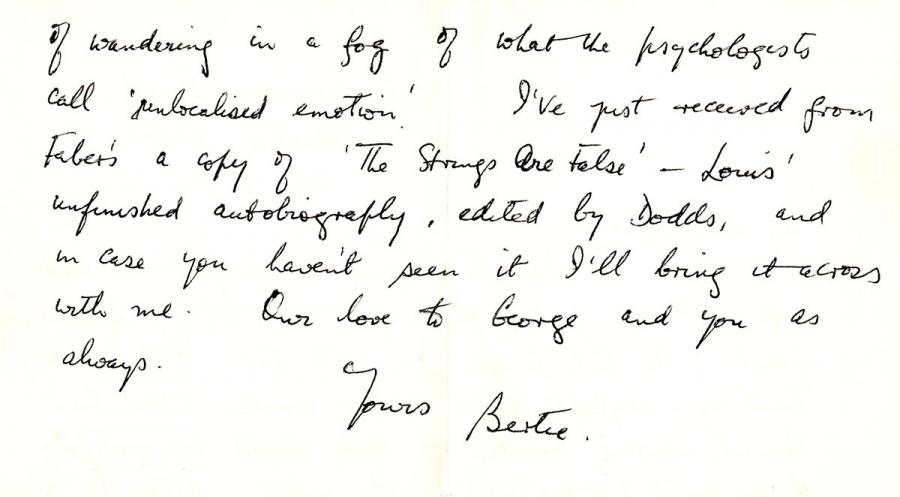 of wandering in a fog of what the psychologists
call 'unlocalised emotion'. I've just received from
Faber's a copy of 'The Strings Are False' – Louis'
unfinished autobiography, edited by Dodds, and
in case you haven't seen it I'll bring it across
with me. Our love to George and you as
always.
Yours Bertie.